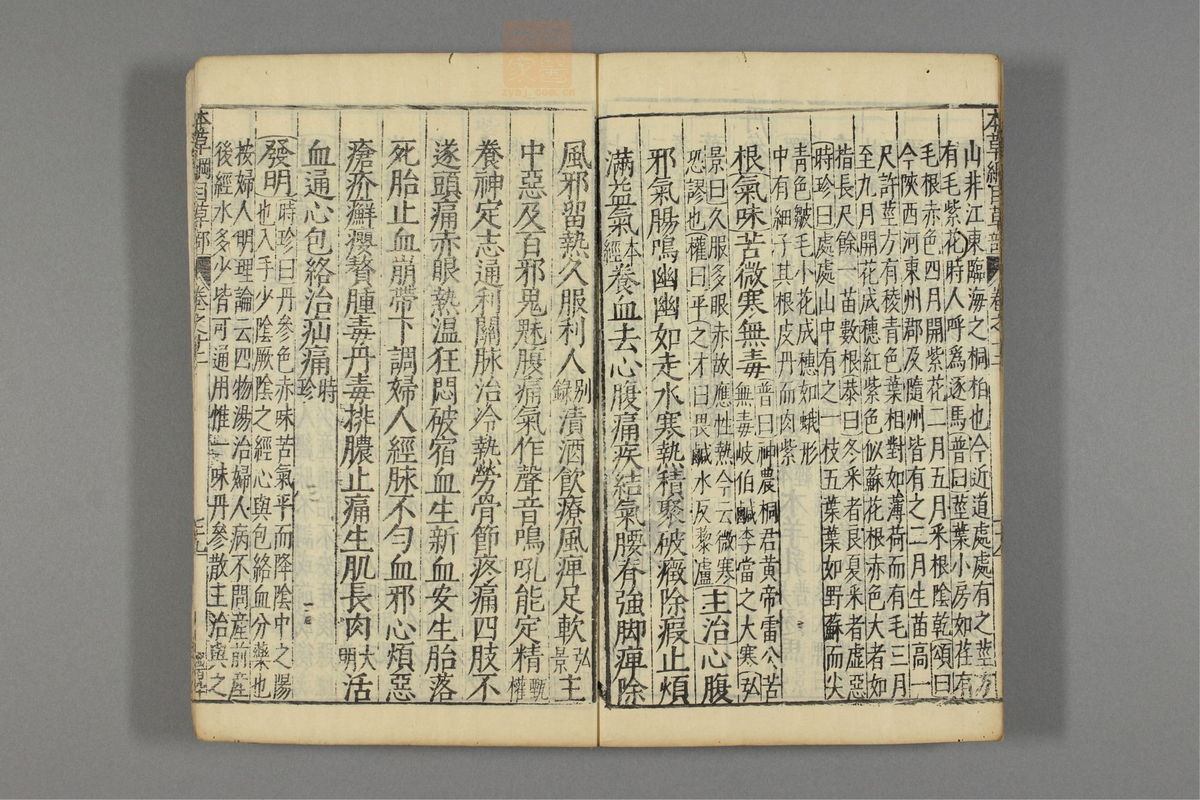 本草綱目草部 卷之十二
山井江東臨海之桐柏也今近道處處有之莖方
有毛紫花時人呼爲逐馬普曰莖葉小房如荏有
毛根赤色四月開紫花二月五月釆根陰乾頌曰
今陝西河東州郡及隨州皆有之二月生苗高一
尺許莖方有稜青色葉相對如薄荷而有毛三月
至九月開花成穗紅紫色似蘇花根赤色大者如
指長尺餘一苗數根恭曰冬釆者良夏釆者虛惡
時珍曰處處山中有之一枝五葉葉如野蘇而尖
青色皺毛小花成穗如蛾形
中有細子其根皮丹而肉紫
根氣味苦微寒無毒普曰神農桐君黃帝雷公苦
無毒岐伯鹹李當之大寒弘
景曰久服多眼赤故應性熱今云微寒
恐謬也權曰平之才曰畏鹹水反藜蘆主治心腹
邪氣腸鳴幽幽如走水寒熱積聚破癥除瘕止煩
滿益氣本經養血去心腹痛疾結氣腰脊強脚痺除
風邪留熱久服利人別錄漬酒飲療風痺足軟弘景主
中惡及百邪鬼魅腹痛氣作聲音鳴吼能定精甄權
養神定志通利關脉治冷熱勞骨節疼痛四肢不
遂頭痛赤眼熱溫狂悶破宿血生新血安生胎落
死胎止血崩帶下調婦人經脉不勻血邪心煩惡
瘡疥癬癭贅腫毒丹毒排膿止痛生肌長肉大明活
血通心包絡治疝痛時珍
發明時珍曰丹參色赤味苦氣平而降陰中之陽
也入手少陰厥陰之經心與包絡血分藥也
按婦人明理論云四物湯治婦人病不問產前產
後經水多少皆可通用惟一味丹參散主治與之
本草綱目草部 卷之十二 七十九